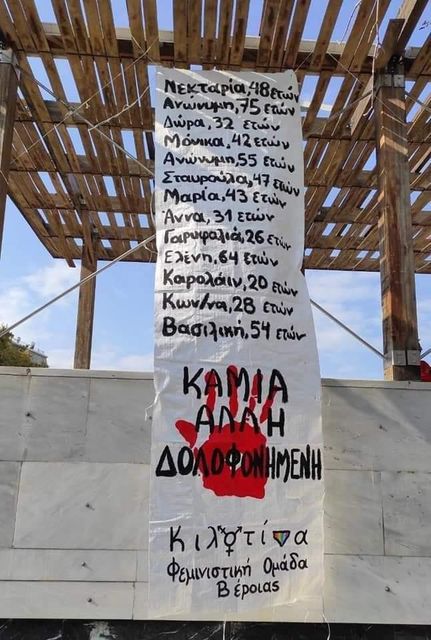 Νεκταρία, 48 ετών
Ανώνυμη, 75 ετών
Δώρα, 32 ετών
Μόνικα, 42 ετών
Ανώνυμη, 55 ετών
Σταυρούλα, 47 ετών
Μαρία, 43 ετών
Άννα, 31 ετών
Γαρυφαλιά, 26 ετών
Ελένη, 64 ετών
Καρολάιν, 20 ετών
Κων/να, 28 ετών
Βασιλική, 54 ετών
ΚΑΜΙΑ
ΑΛΛΗ
ΔΟΛΟΦΟΝΗΜΕΝΗ
Κιλοτίνα
Φεμινιστική Ομάδα
Βέροιας